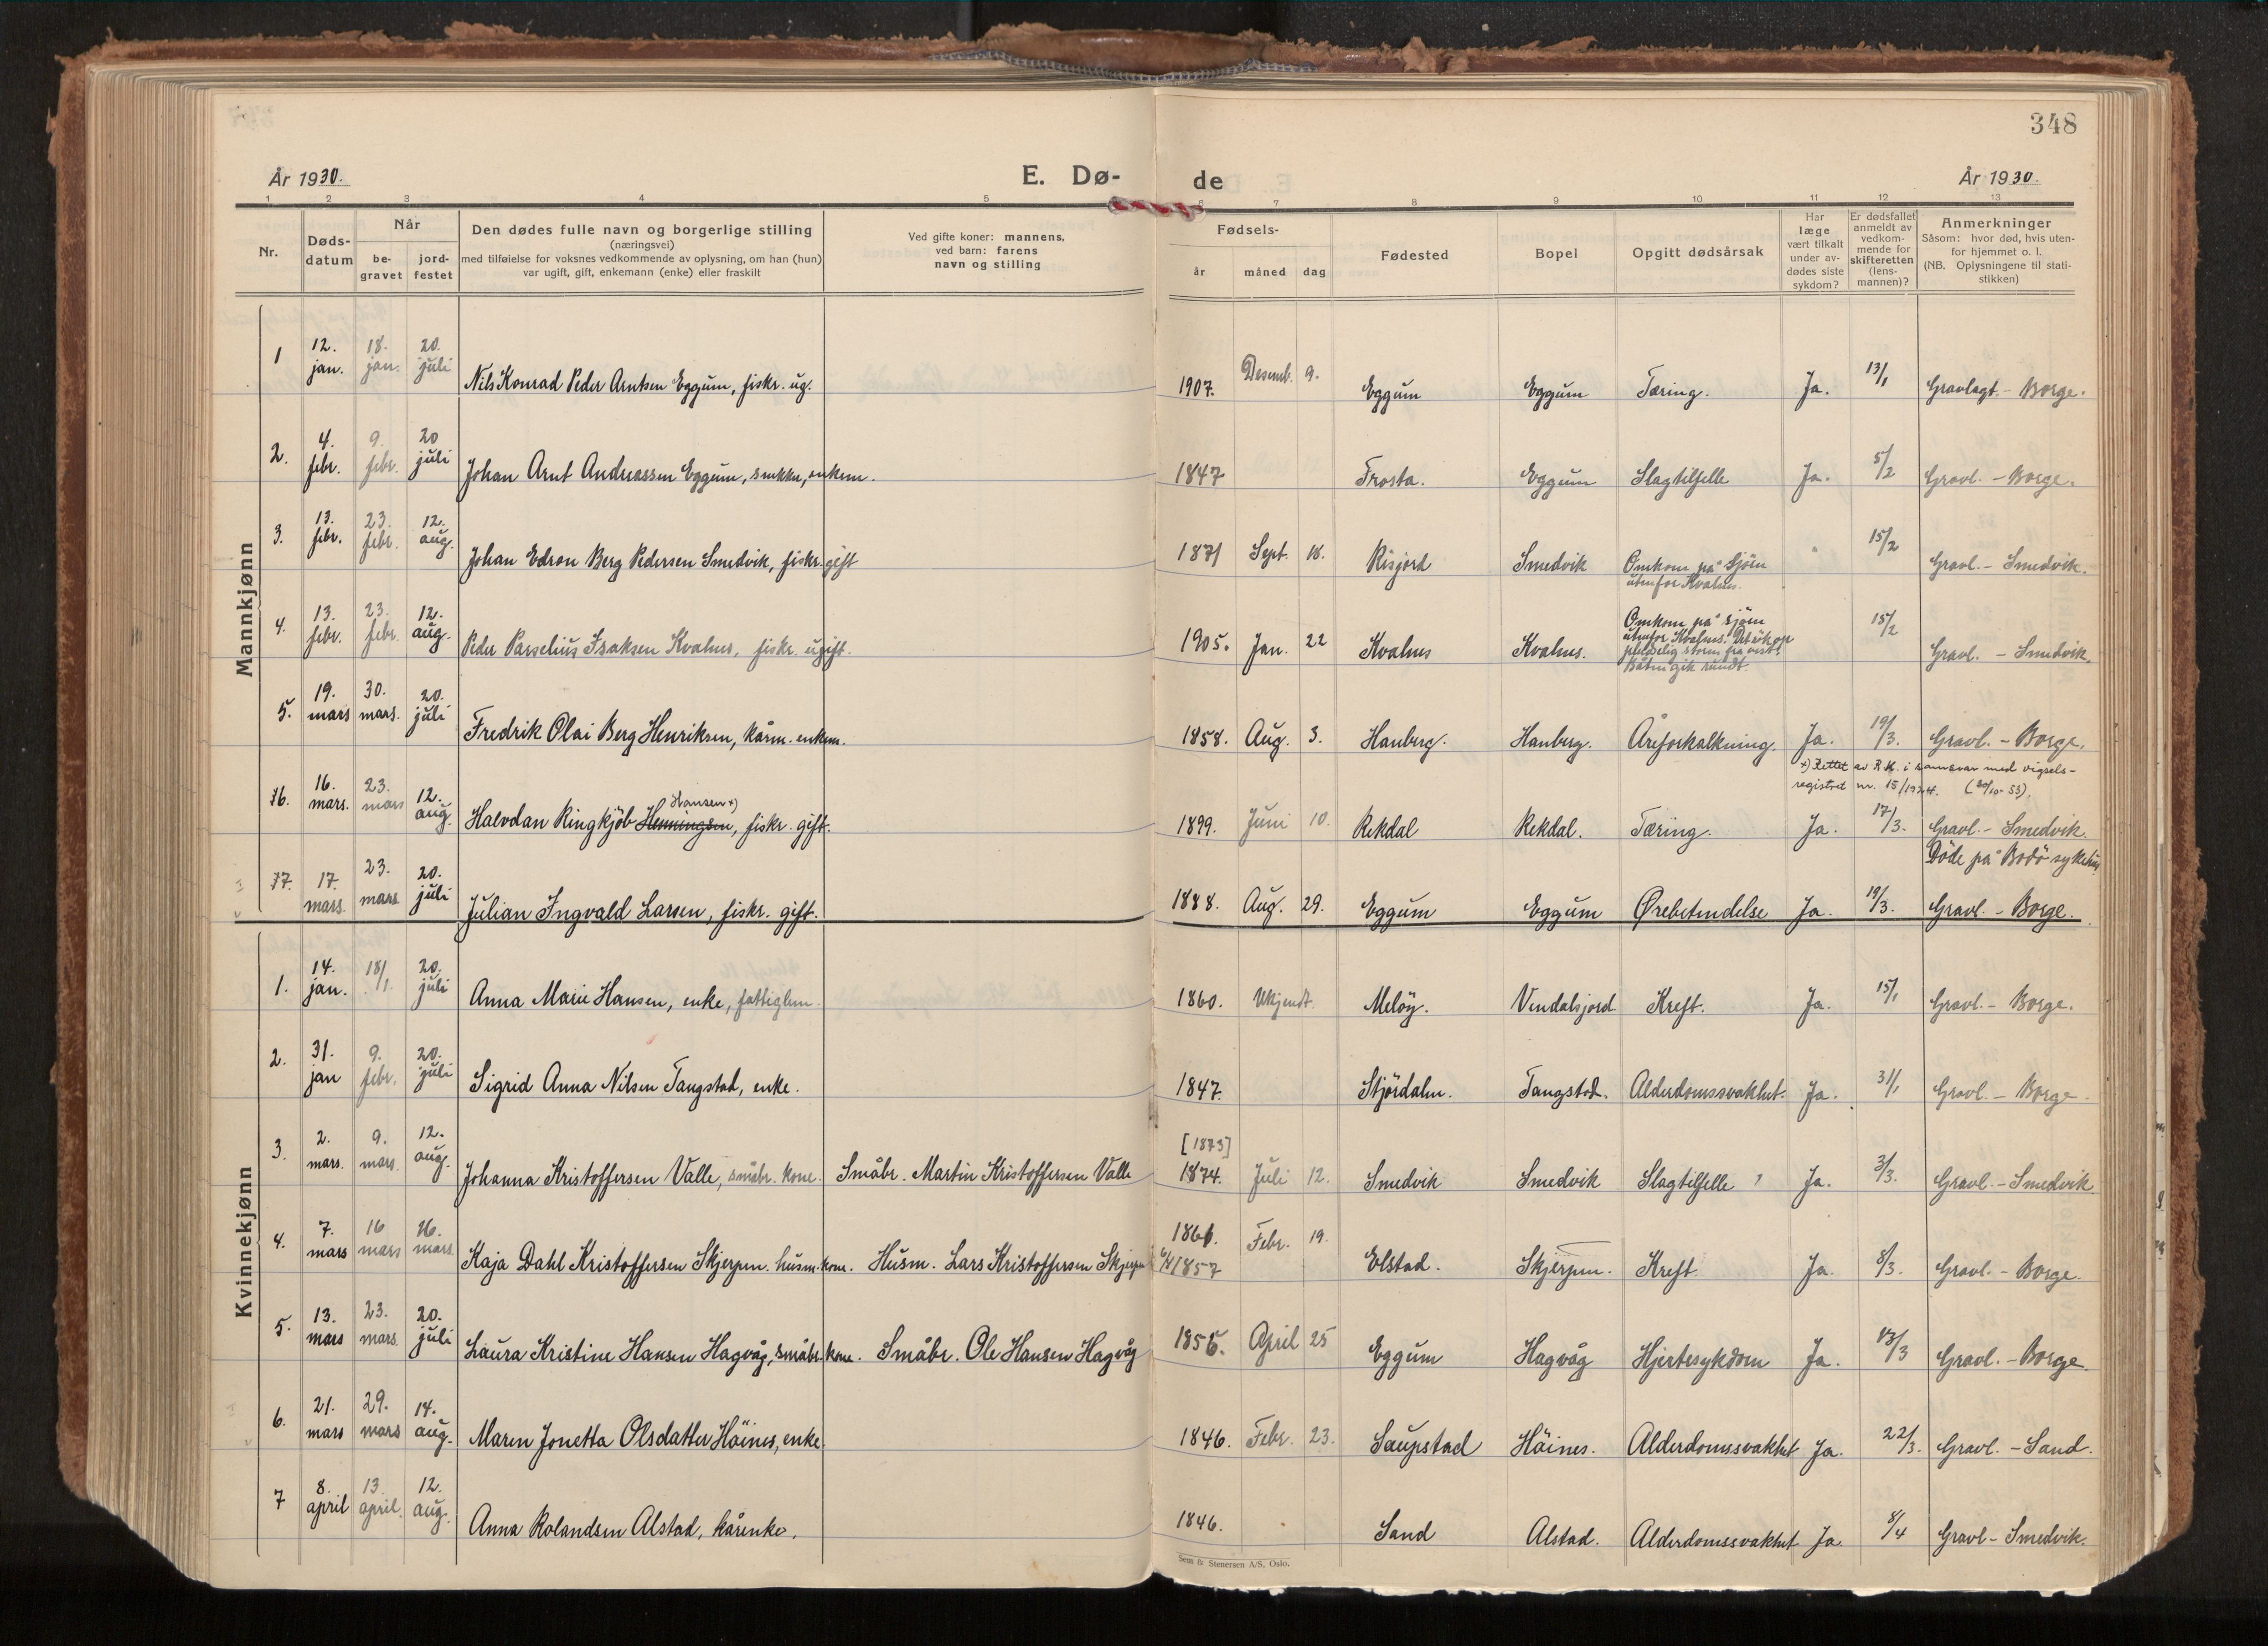 348
År 1930.
E. Dø-
de
År 1930.
1 2 3 4 5 6 7 8 9 10 11 12 13
Nr.
Døds-
datum
Når
be-
gravet
jord-
festet
Den dødes fulle navn og borgerlige stilling
(næringsvei)
med tilføielse for voksnes vedkommende av oplysning, om han (hun)
var ugift, gift, enkemann (enke) eller fraskilt
Ved gifte koner: mannens,
ved barn: farens
navn og stilling
Fødsels-
år
måned
dag
Fødested
Bopel
Opgitt dødsårsak
Har
læge
vært tilkalt
under av-
dødes siste
sykdom?
Er dødsfallet
anmeldt av
vedkom-
mende for
skifteretten
(lens-
mannen)?
Anmerkninger
Såsom: hvor død, hvis uten-
for hjemmet o. l.
(NB. Oplysningene til stati-
stikken)
Mannkjønn
1 12. jan. 18. jan. 20. juli Nils Konrad Peder Arntsen Eggum, fiskr. ug. 1907. Desemb. 9. Eggum Eggum Tæring. Ja. 13/1 Gravlagt - Borge.
2. 4. febr. 9. febr. 20 juli Johan Arnt Andreassen Eggum, snekker, enkem. 1847 Frosta. Eggum Slagtilfelle Ja. 5/2 Gravl. - Borge.
3. 13. febr. 23. febr. 12. aug. Johan Edron Berg Pedersen Smedvik, fiskr. gift 1871 Sept. 18. Risjord Smedvik Omkom på sjöen
utenfor Kvalnes. 15/2 Gravl. - Smedvik.
4. 13. febr. 23. febr. 12. aug. Peder Parselius Isaksen Kvalnes, fiskr. ugift. 1905. Jan. 22 Kvalnes Kvalnes. Omkom på sjöen
utenfor Kvalnes. Det rök op
pludselig storm fra vest.
Båten gik rundt. 15/2 Gravl. - Smedvik.
5. 19. mars 30. mars. 20. juli Fredrik Olai Berg Henriksen, kårm. enkem. 1858. Aug. 3. Hanberg. Hanberg. Åreforkalkning. Ja. 19/3. Gravl. - Borge.
x) Rettet av R.K. i samsvar med vigsels-
registret nr. 15/1924. (20/10-53).
6. 16. mars. 23. mars 12. aug. Halvdan Ringkjöb Henningsen, Hansen x) fiskr. gift. 1899. Juni 10. Rekdal Rekdal. Tæring. Ja. 17/3. Gravl. - Smedvik.
Döde på Bodö sykehus
7. 17. mars. 23. mars 20. juli Julian Ingvald Larsen, fiskr. gift. 1888. Aug. 29. Eggum Eggum Ørebetendelse Ja. 19/3. Gravl. - Borge.
Kvinnekjønn
1. 14. jan. 18/1. 20. juli Anna Marie Hansen, enke, fattiglem. 1860. Ukjendt. Melöy. Vendalsjord Kreft. Ja. 15/1 Gravl. - Borge.
2. 31. jan 9. febr. 20. juli Sigrid Anna Nilsen Tangstad, enke. 1847. Stjördalen. Tangstad. Alderdomssvakhet. Ja. 31/1 Gravl. - Borge.
[1873]
3. 2. mars. 9. mars. 12. aug. Johanna Kristoffersen Valle, småbr. kone. Småbr. Martin Kristoffersen Valle 1874. Juli 12. Smedvik Smedvik Slagtilfelle Ja. 3/3. Gravl. - Smedvik.
4. 7. mars 16 mars 16. mars. Kaja Dahl Kristoffersen Skjerpen. husm. kone. Husm. Lars Kristoffersen Skjerpen 1861. Febr. 19. Elstad. Skjerpen. Kreft. Ja. 8/3. Gravl. - Borge.
1857
5. 13. mars 23. mars. 20. juli Laura Kristine Hansen Hagvåg, småbr. kone. Småbr. Ole Hansen Hagvåg 1856. April 25 Eggum Hagvåg Hjertesykdom Ja. 13/3 Gravl. - Borge.
6. 21. mars 29. mars 14. aug. Maren Jonetta Olsdatter Höines, enke. 1846. Febr. 23. Saupstad Höines. Alderdomssvakhet Ja. 22/3. Gravl. - Sand.
7 8. april 13. april. 12. aug. Anna Rolandsen Alstad, kårenke. 1846. Sand Alstad. Alderdomssvakhet Ja. 8/4 Gravl - Smedvik.
Sem & Stenersen A/S, Oslo.